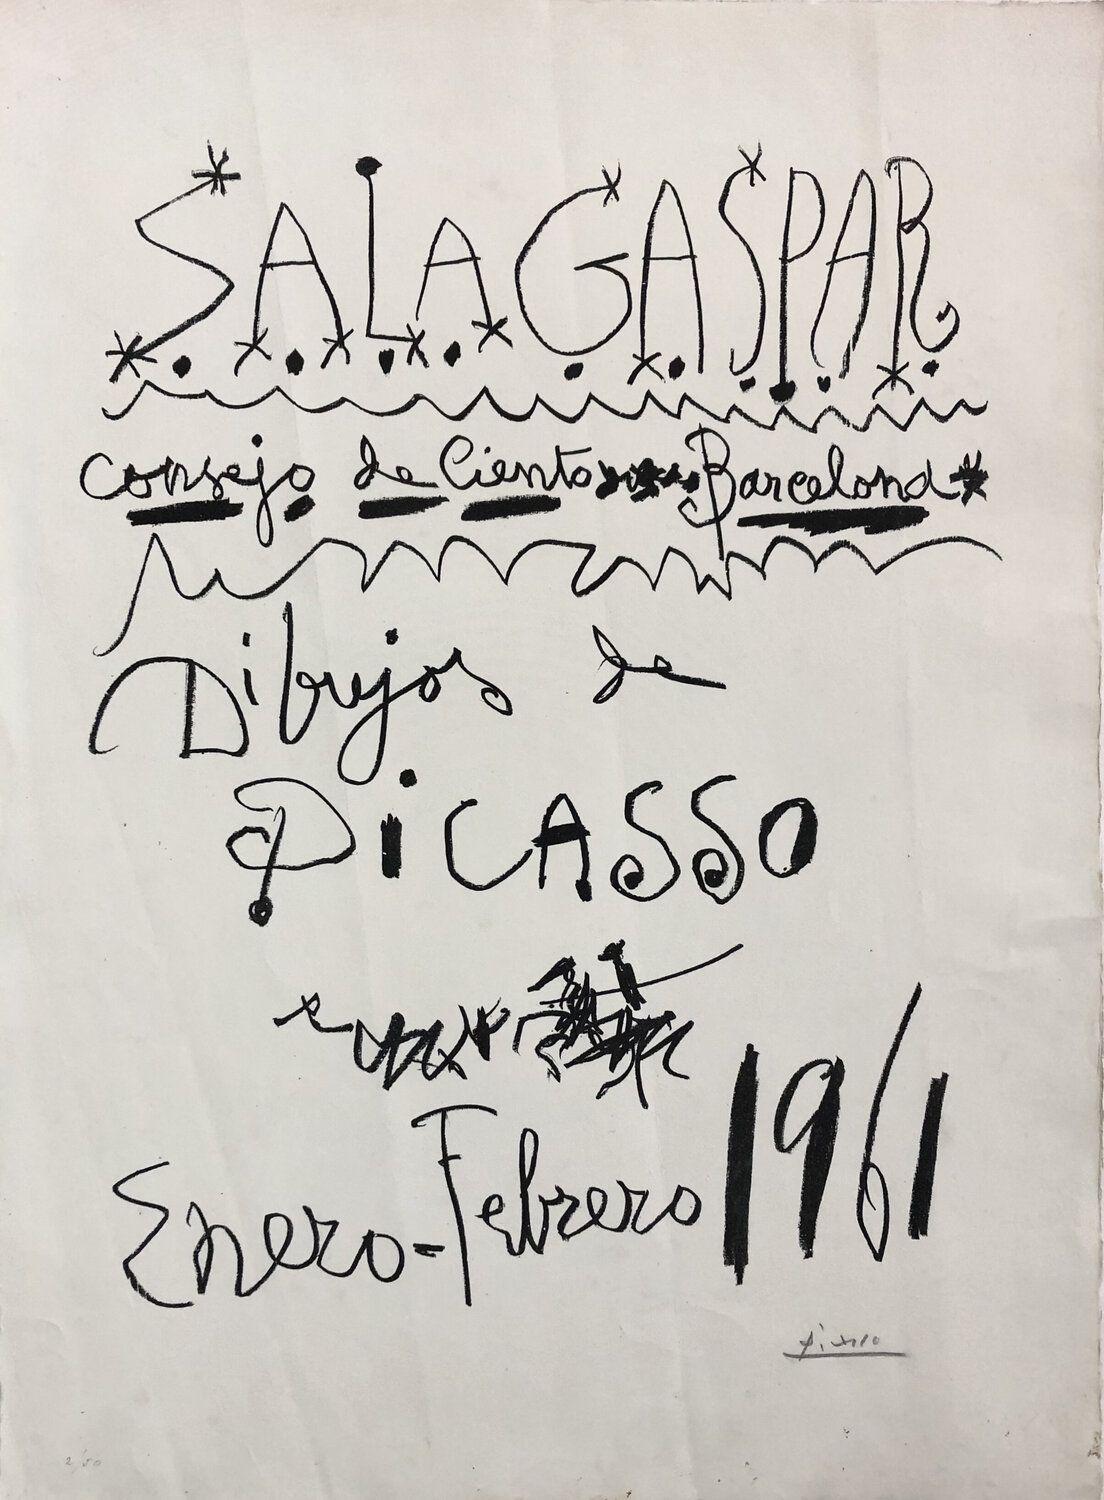 SALA GASPAR
Consejo de Ciento Barcelona
Dibujos de
PiCASSO
Enero-Febrero 1961
Picasso
2/50